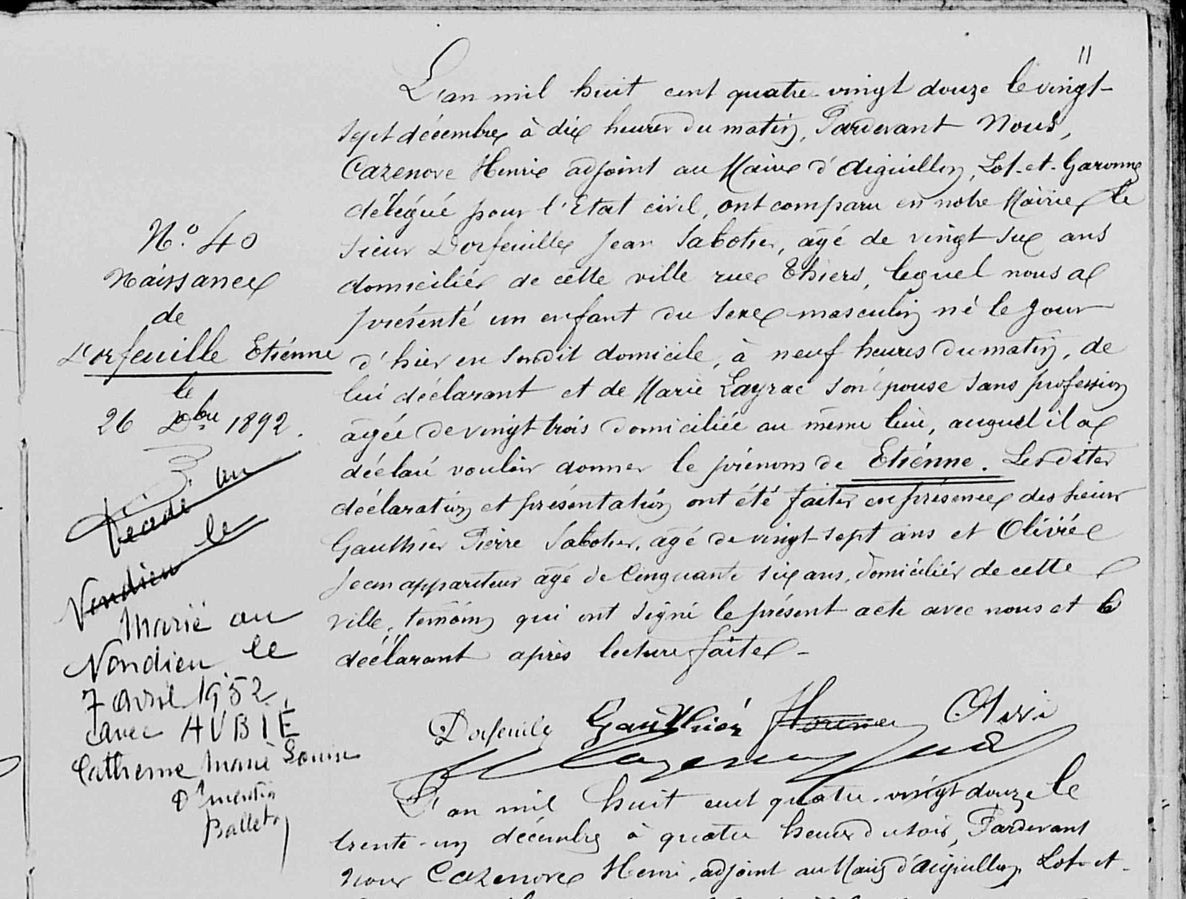 11
N.º 40
Naissance
de
Dorfeuille Etiénne
le
26 Dbre 1892.
Décédé au
Nondieu le
Marié au
Nondieu le
7 avril 1952
avec AUBIÉ
Catherine Marie Louise
Dt mention
L'an mil huit cent quatre-vingt douze le vingt-
sept décembre à dix heures du matin, Pardevant Nous,
Cazenove Henri adjoint au Maire d'Aiguillon, Lot-et-Garonne
délégué pour l'Etat civil, ont comparu en notre Mairie le
sieur Dorfeuille Jean Sabotier, agé de vingt six ans
domicilié de cette ville rue Thiers, lequel nous a
présenté un enfant du sexe masculin né le jour
d'hier en sondit domicile, à neuf heures du matin, de
lui déclarant et de Marie Layrac son épouse sans profession
agée de vingt trois domiciliée au même lieu, auquel il a
déclaré vouloir donner le prénoms de Etiénne. Lesdites
déclaration et présentation ont été faites en présence des sieurs
Gauthier Pierre Sabotier, agé de vingt-sept ans et Olivié
Jean appariteur agé de Cinquante six ans, domiciliés de cette
ville, témoins qui ont signé le présent acte avec nous et le
déclarant après lecture faite-
Dorfeuille Gauthier Olivi
L'an mil huit cent quatre-vingt douze le
trente-un décembre à quatre heures du soir, Pardevant
Nous Cazenove Henri, adjoint au Maire d'Aiguillon, Lot-et-